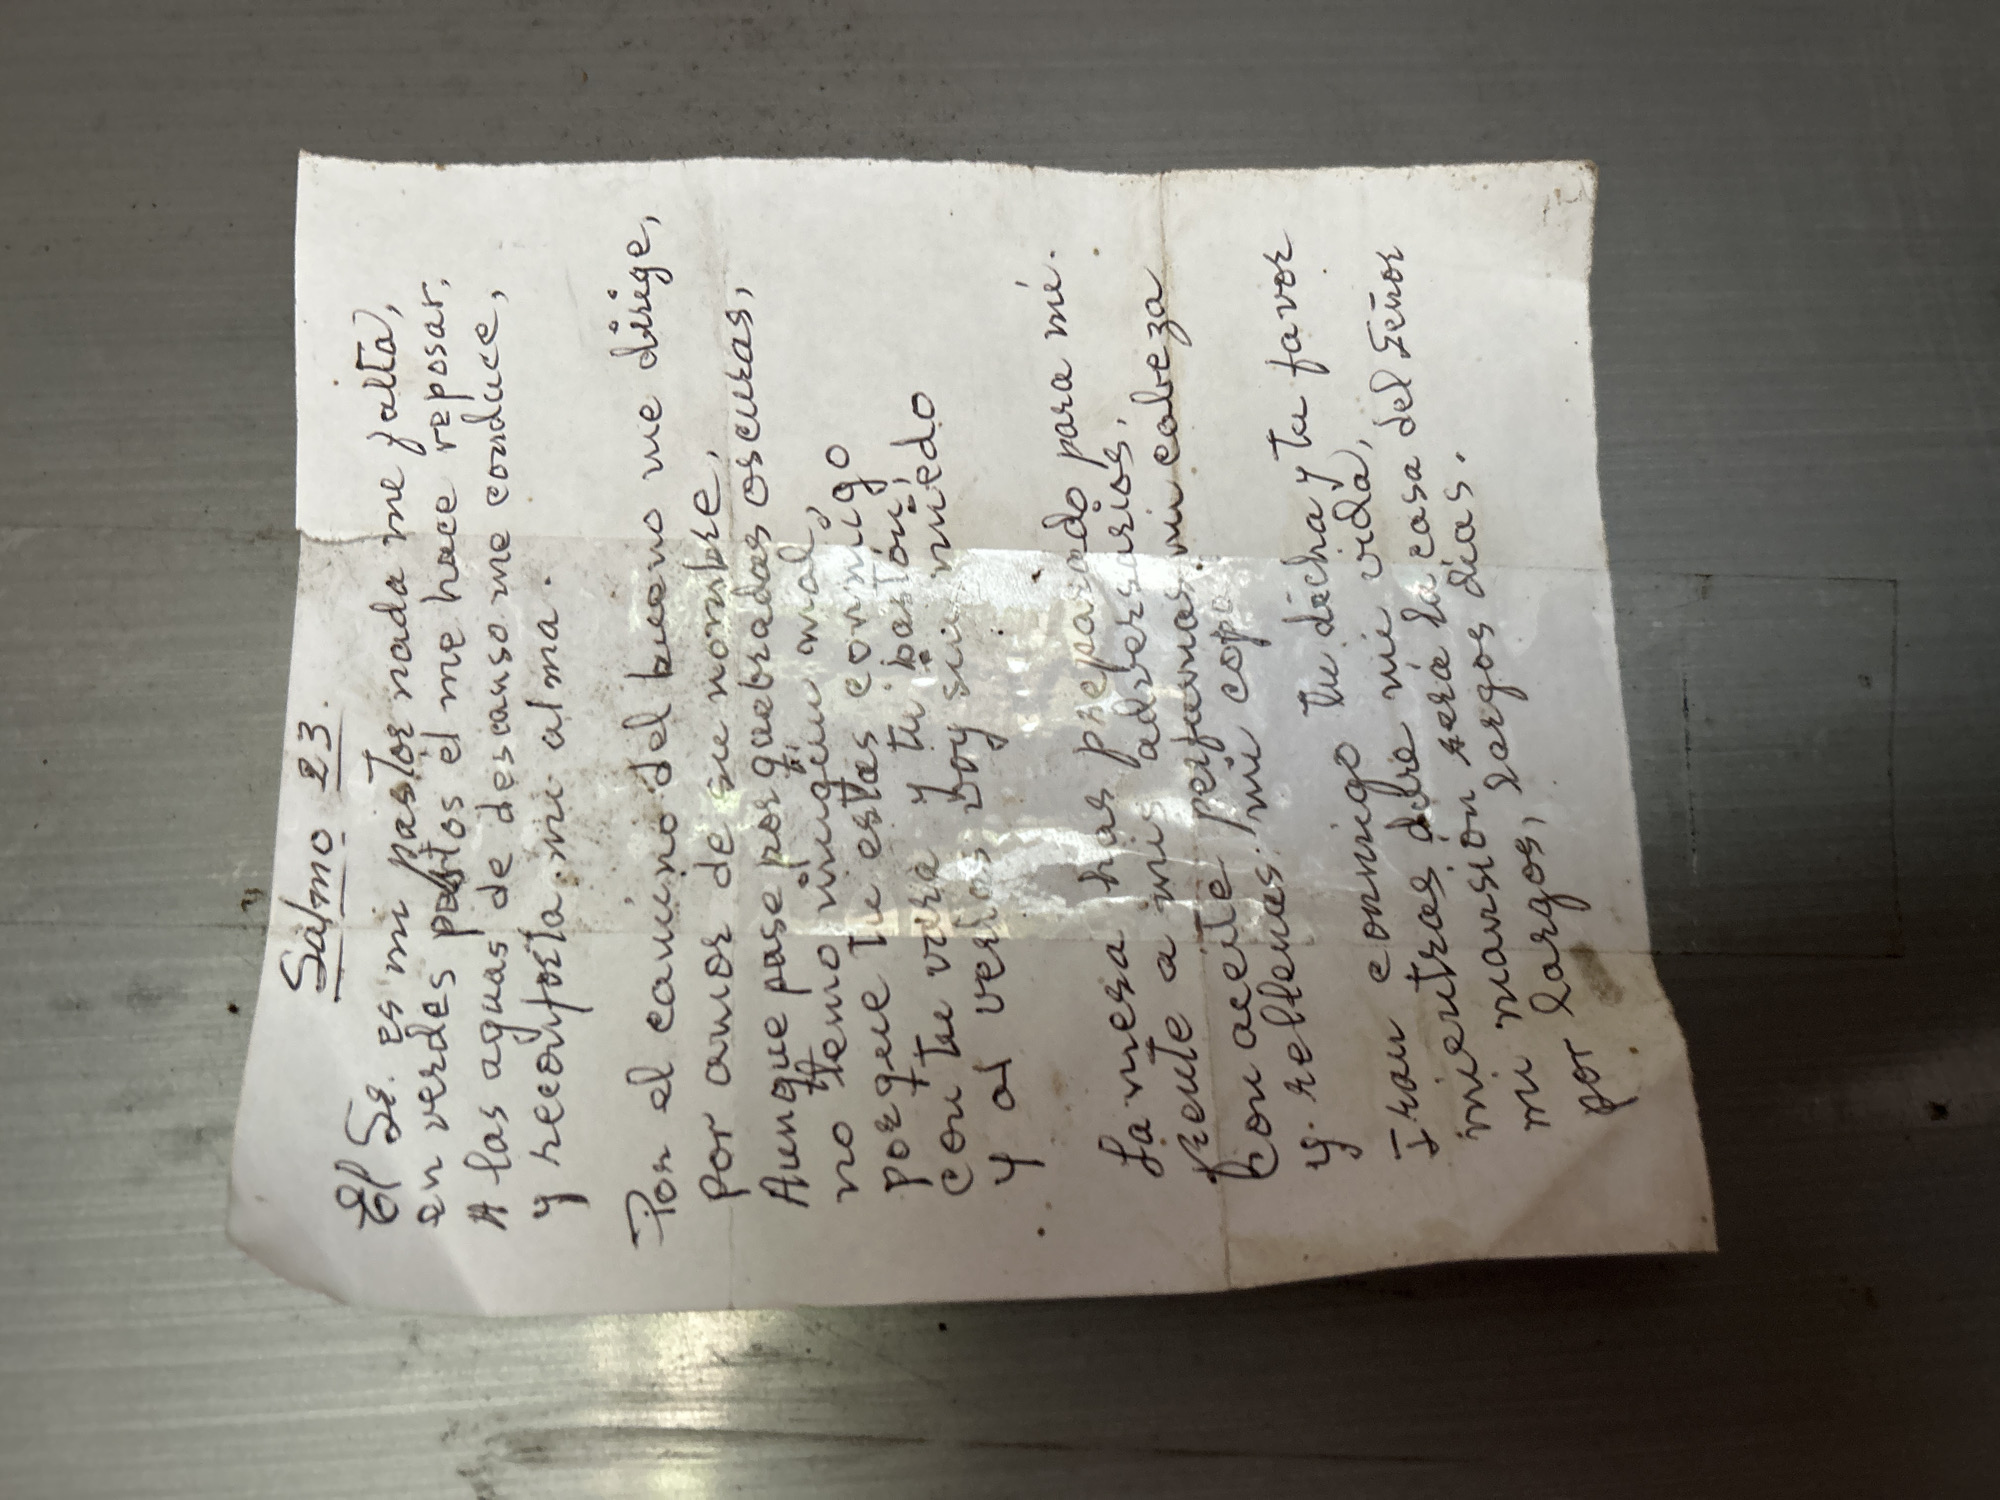 Salmo 23.
El Sr. es mi pastor nada me falta,
en verdes pastos el me hace reposar.
A las aguas de descanso me conduce,
y reconforta mi alma.
Por el camino del bueno me dirige,
por amor de su nombre,
Aunque pase por quebradas oscuras,
no temo ningún mal,
porque tu estás conmigo
con tu vara y tu bastón,
y al verlas voy sin miedo
La mesa has preparado para mí.
frente a mis adversarios,
Con aceite perfumas mi cabeza
y rellenas mi copa
Iran conmigo tu dicha y tu favor
mientras dure mi vida,
mi mansión será la casa del Señor
por largos, largos días.